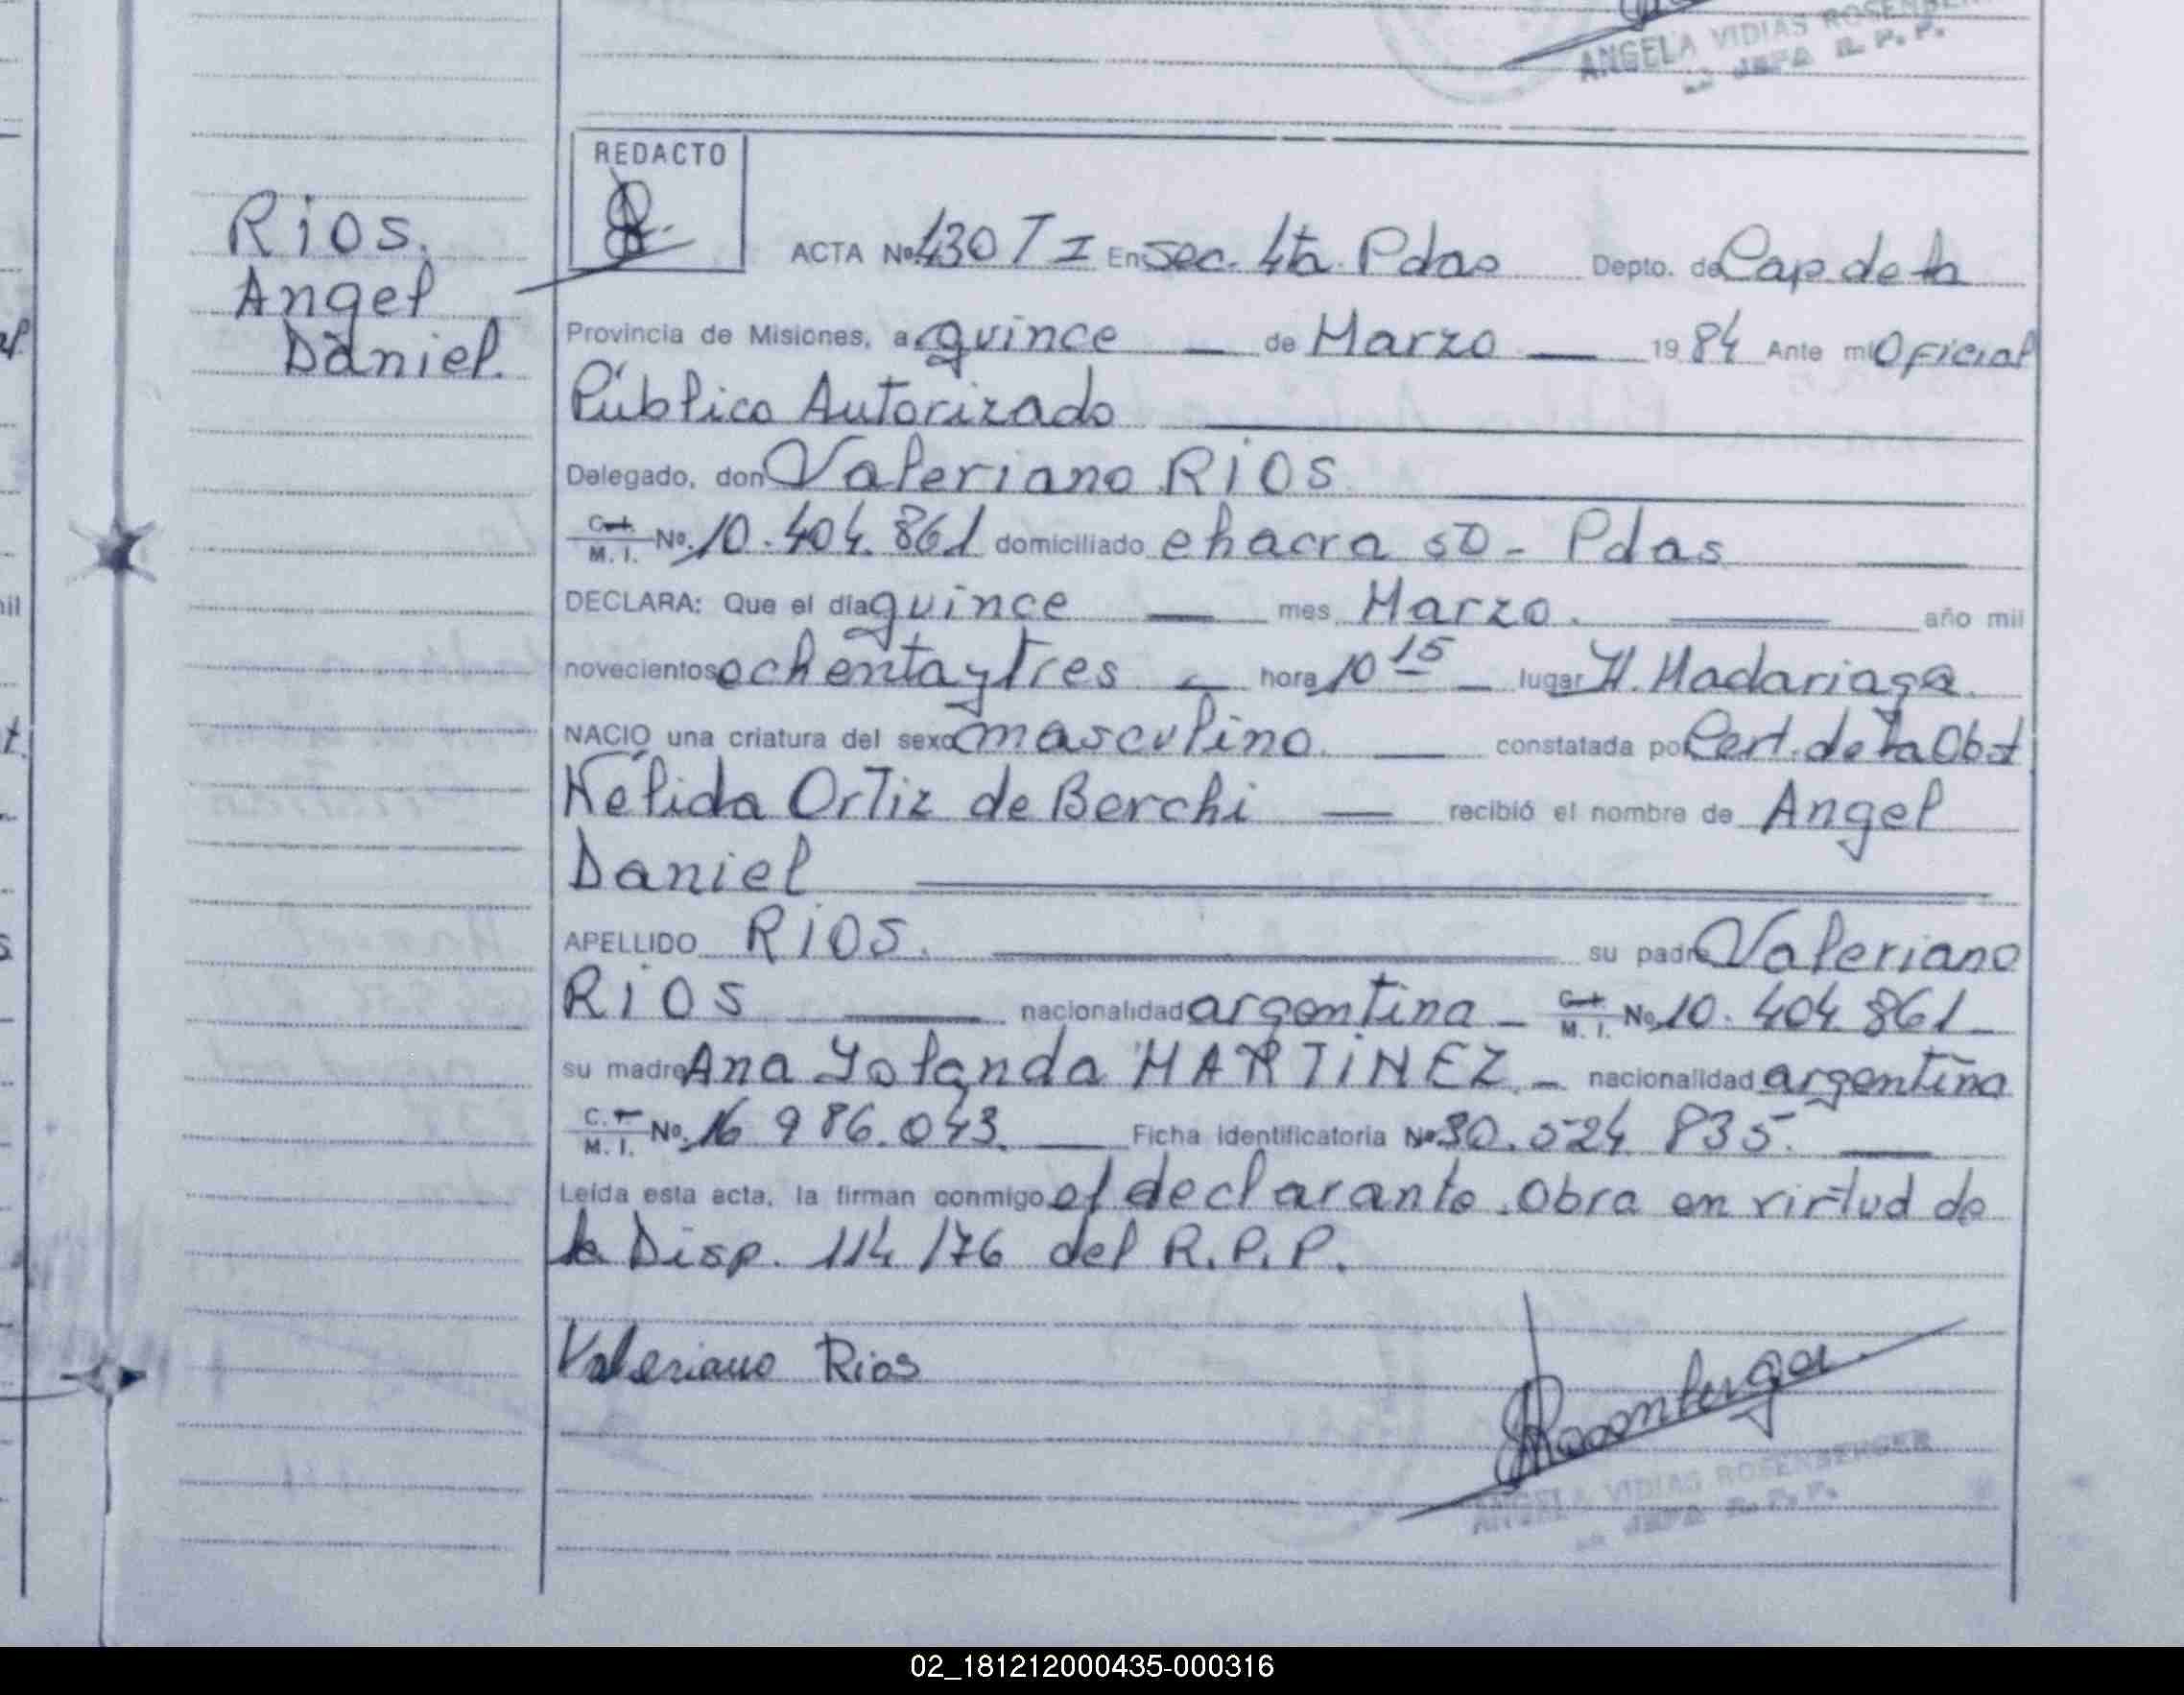 ANGELA VIDIAS ROSENBERGER
JEFA R. P. P.
REDACTO
Rios.
Angel
Daniel.
ACTA Nº 430 T I En Sec. 4ta. Pdas Depto. de Cap. de la
Provincia de Misiones, a quince — de Marzo — 1984 Ante mi Oficial
Público Autorizado
Delegado, don Valeriano RIOS
M. I. Nº 10.404.861 domiciliado chacra 50 - Pdas
DECLARA: Que el día quince — mes Marzo. — año mil
novecientos ochenta y tres - hora 10 15 - lugar H. Madariaga.
NACIO una criatura del sexo masculino. — constatada por Cert. de la Obst
Nélida Ortiz de Berchi — recibió el nombre de Angel
Daniel
APELLIDO RIOS. su padre Valeriano
RIOS — nacionalidad argentina - C. I. M. I. Nº 10.404.861 -
su madre Ana Yolanda MARTINEZ. - nacionalidad argentina
C. I. M. I. Nº 16 986.043. — Ficha identificatoria Nº 30.524 835. —
Leída esta acta, la firman conmigo el declarante. Obra en virtud de
la Disp. 114/76 del R.P.P.
Valeriano Rios
Rosenberger
ANGELA VIDIAS ROSENBERGER
JEFA R. P. P.
02_181212000435-000316